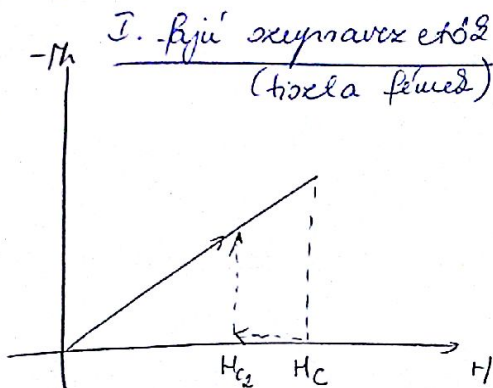 I. fajú szupravezetők
(tiszta fémek)
-M
H_{c_2} H_C H